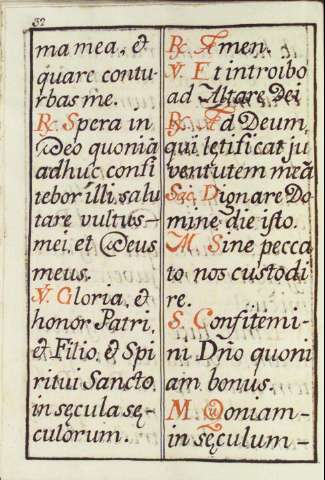 32
ma mea, &
quare contu
rbas me.
R. Spera in
Deo quoniã
adhuc confi
tebor illi, salu
tare vultus-
mei, et Deus
meus.
V. Gloria, &
honor Patri,
& Filio, & Spi
ritui Sancto,
in sęcula sę-
culorum.
R. Amen.
V. Et introibo
ad Altare Dei
R. Ad Deum,
qui letificat ju
ventutem meã
Sac. Dignare Do
mine die isto.
M. Sine pecca
to nos custodi
re.
S. Confitemi-
ni Dño quoni
am bonus.
M. Quoniam-
in sęculum-